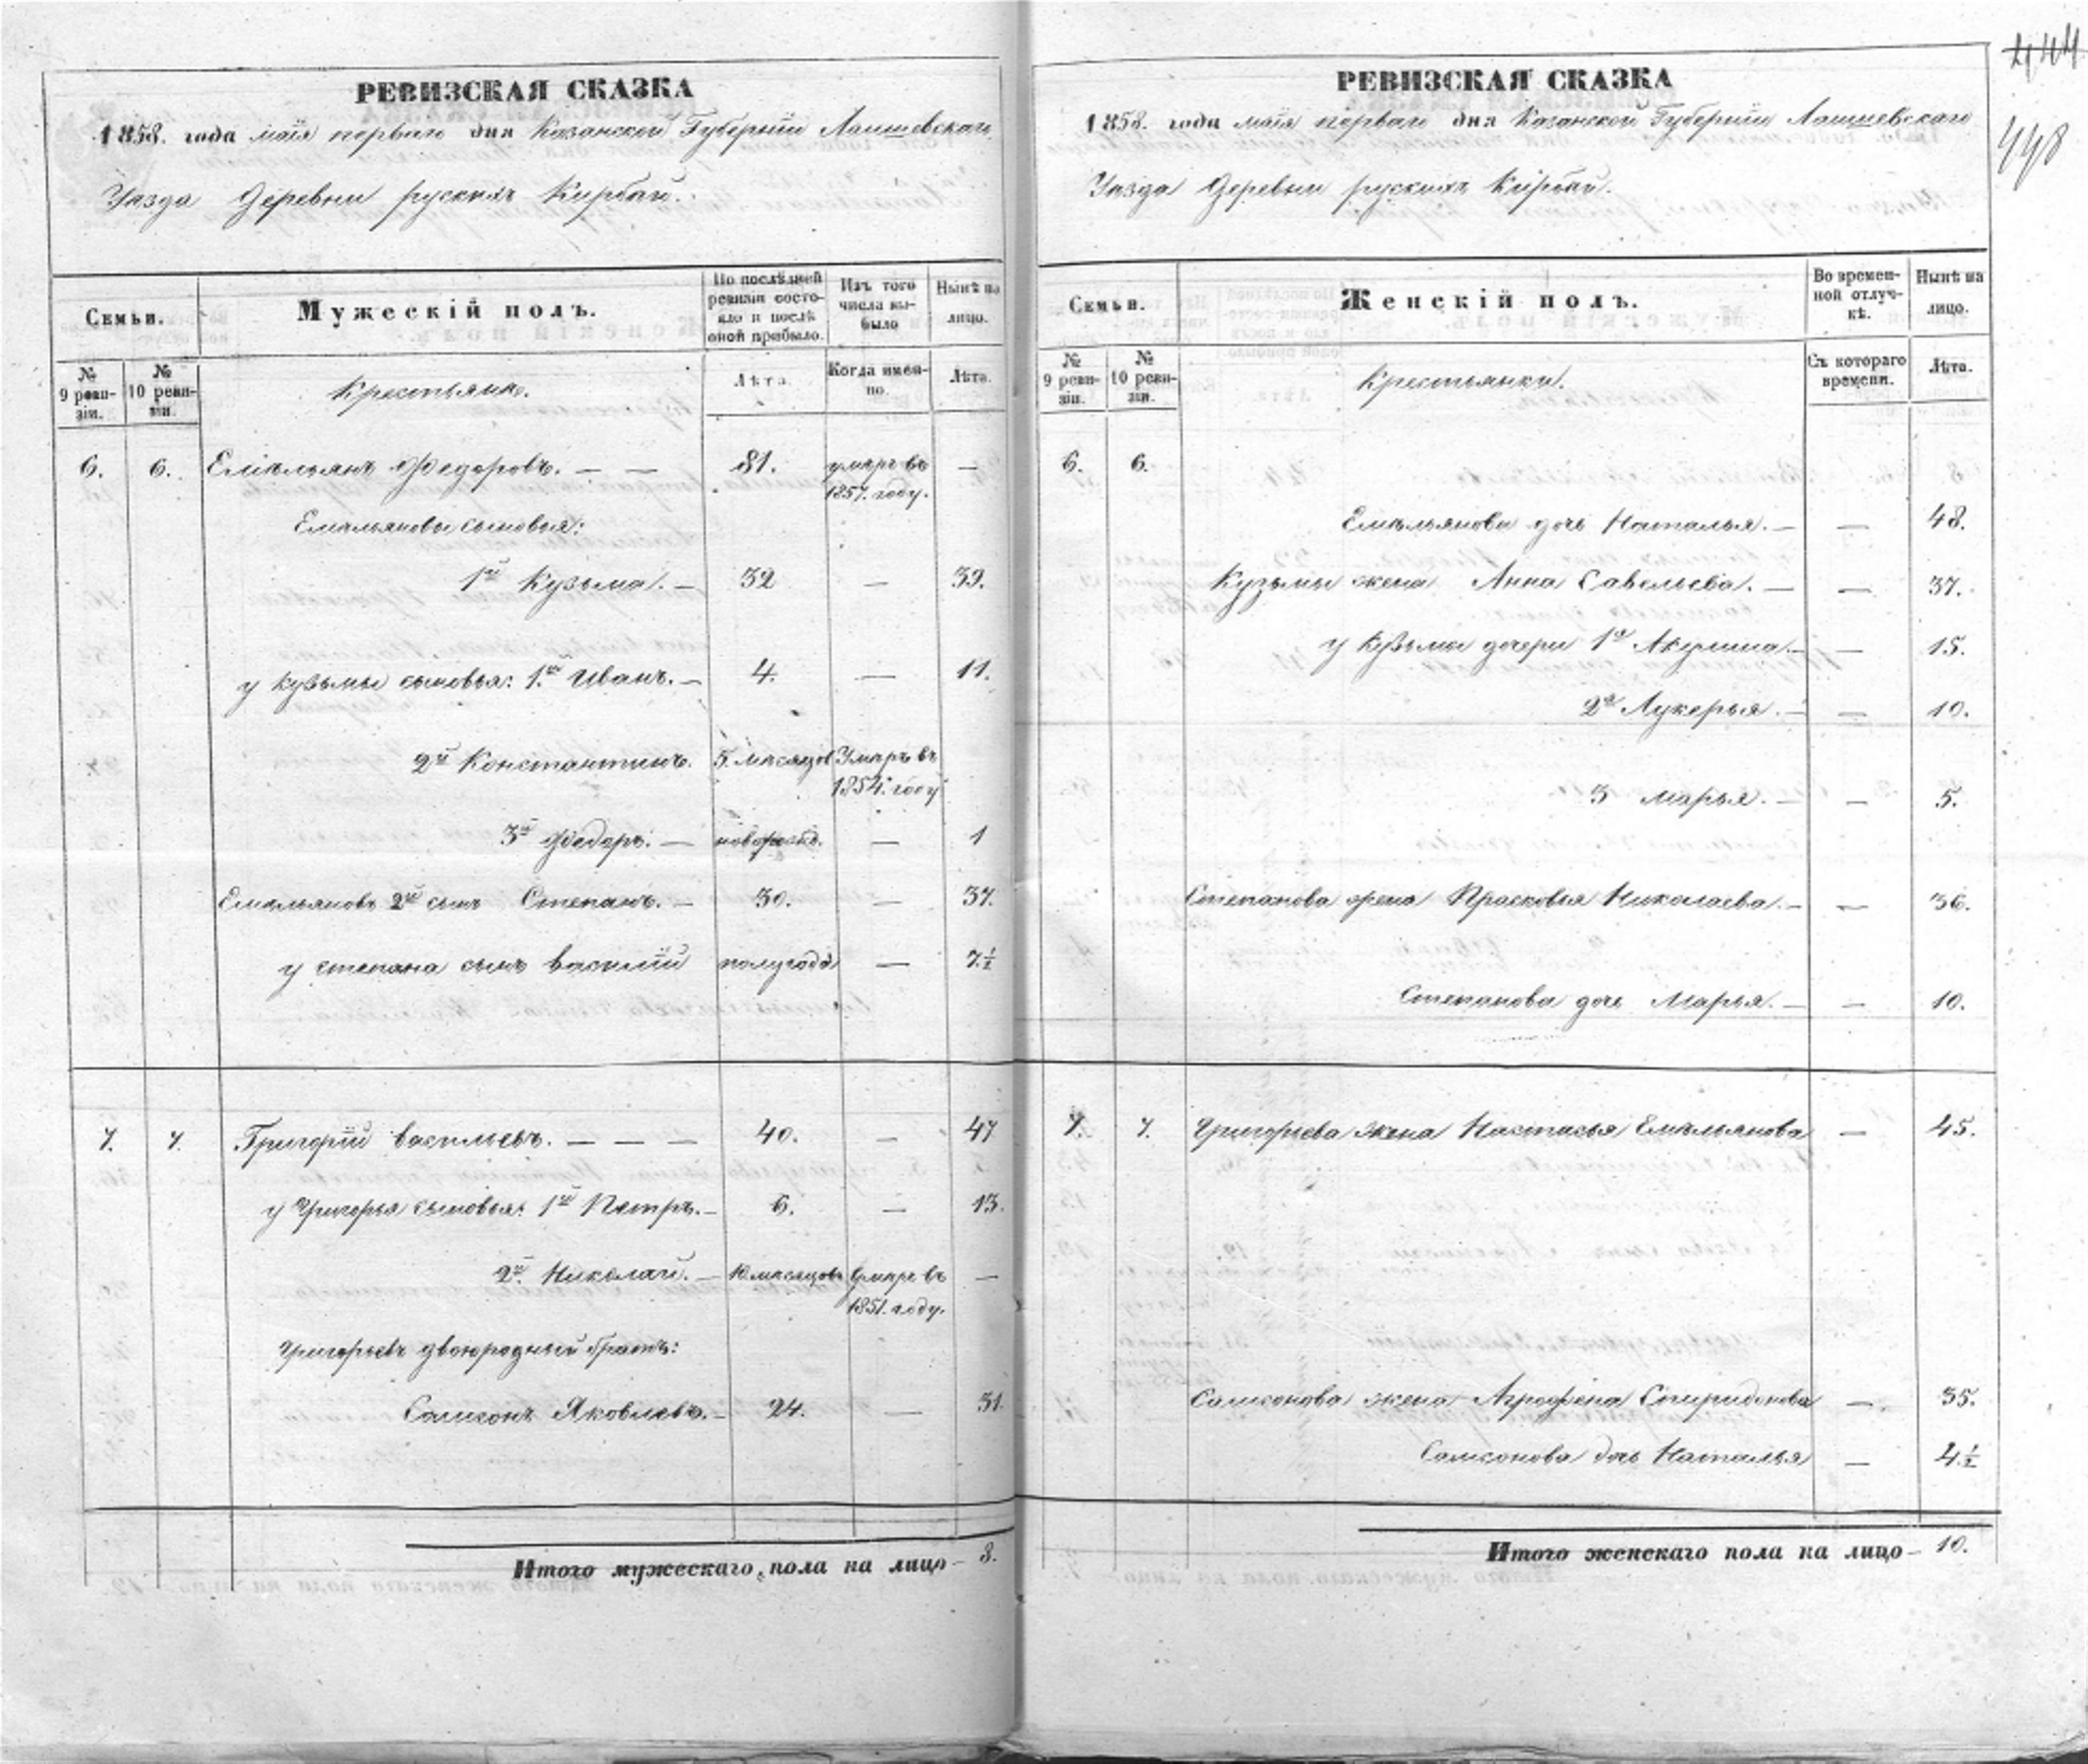 444
448
РЕВИЗСКАЯ СКАЗКА
1858. года маія перваго дня Казанской Губерніи Лаишевскаго
Уѣзда Деревни русскихъ Кирбай.
Семьи.
Мужескій полъ.
По послѣдней ревизіи состояло и послѣ оной прибыло.
Изъ того числа выбыло
Нынѣ на лицо.
№ 9 ревизіи.
№ 10 ревизіи.
Крестьяне.
Лѣта.
Когда именно.
Лѣта.
6. 6. Емельянъ Федоровъ. — — 81. умеръ въ 1857. году. —
Емельяновы сыновья:
1й Кузьма. — 32 — 39.
у Кузьмы сыновья: 1.й Иванъ. — 4. — 11.
2й Константинъ. 5. мѣсяцов Умеръ въ 1854. году
3й Федоръ. — новорожд. — 1
Емельяновъ 2й сынъ Степанъ. — 30. — 37.
у Степана сынъ Василій полугода — 7½
7. 7. Григорій Васильевъ. — — — 40. — 47
у Григорья сыновья: 1й Петръ. — 6. — 13.
2й. Николай. — 10 мѣсяцовъ Умеръ въ 1851. году. —
Григорьевъ двоюродный братъ:
Самсонъ Яковлевъ. — 24. — 31.
Итого мужескаго пола на лицо — 8.
РЕВИЗСКАЯ СКАЗКА
1858. года маія перваго дня Казанской Губерніи Лаишевскаго
Уѣзда Деревни русскихъ Кирбай.
Семьи.
Женскій полъ.
Во временной отлучкѣ.
Нынѣ на лицо.
№ 9 ревизіи.
№ 10 ревизіи.
Крестьянки.
Съ котораго времени.
Лѣта.
6. 6.
Емельянова дочь Наталья. — — 48.
Кузьмы жена Анна Савельева. — — 37.
у Кузьмы дочери 1я Акулина. — — 15.
2я Лукерья. — — 10.
3 Марья. — — 5.
Степанова жена Прасковья Николаева. — — 36.
Степанова дочь Марья. — — 10.
7. 7. Григорьева жена Настасья Емельянова — 45.
Самсонова жена Агрофена Спиридонова — 35.
Самсонова дочь Наталья — 4½
Итого женскаго пола на лицо — 10.